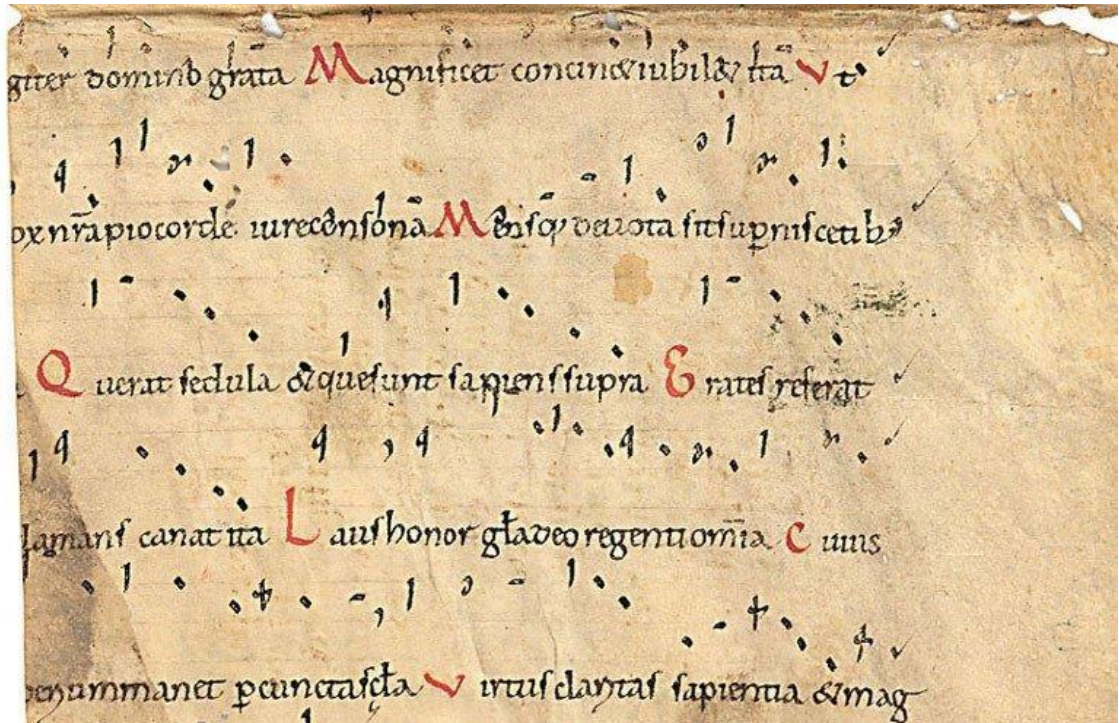 giter dominob gr̄ata Magnificet concinet iubilet ita Ut
ox nr̄a pio corde iure consonā Mensq; devota sit supnis cetib;
Querat sedula & que sunt sapiens supra Grates referat
lamans canat ita Laus honor gl̄a deo regenti om̄ia Cuius
manet p cuncta sc̄la Virtus claritas sapientia & mag